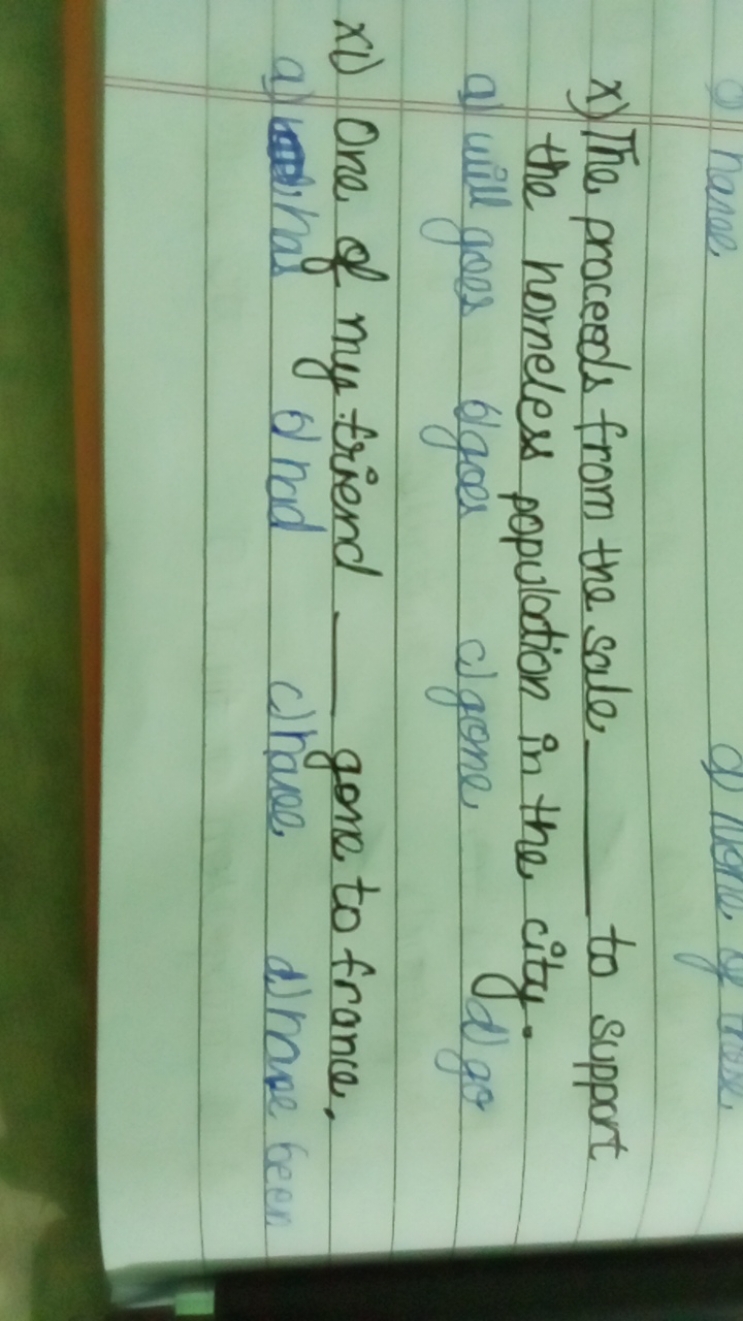 c) have d) None of these
x) The proceeds from the sale ____ to support
the homeless population in the city.
a) will goes b) goes c) gone d) go
xi) One of my friend ____ gone to france.
a) has b) had c) have d) have been